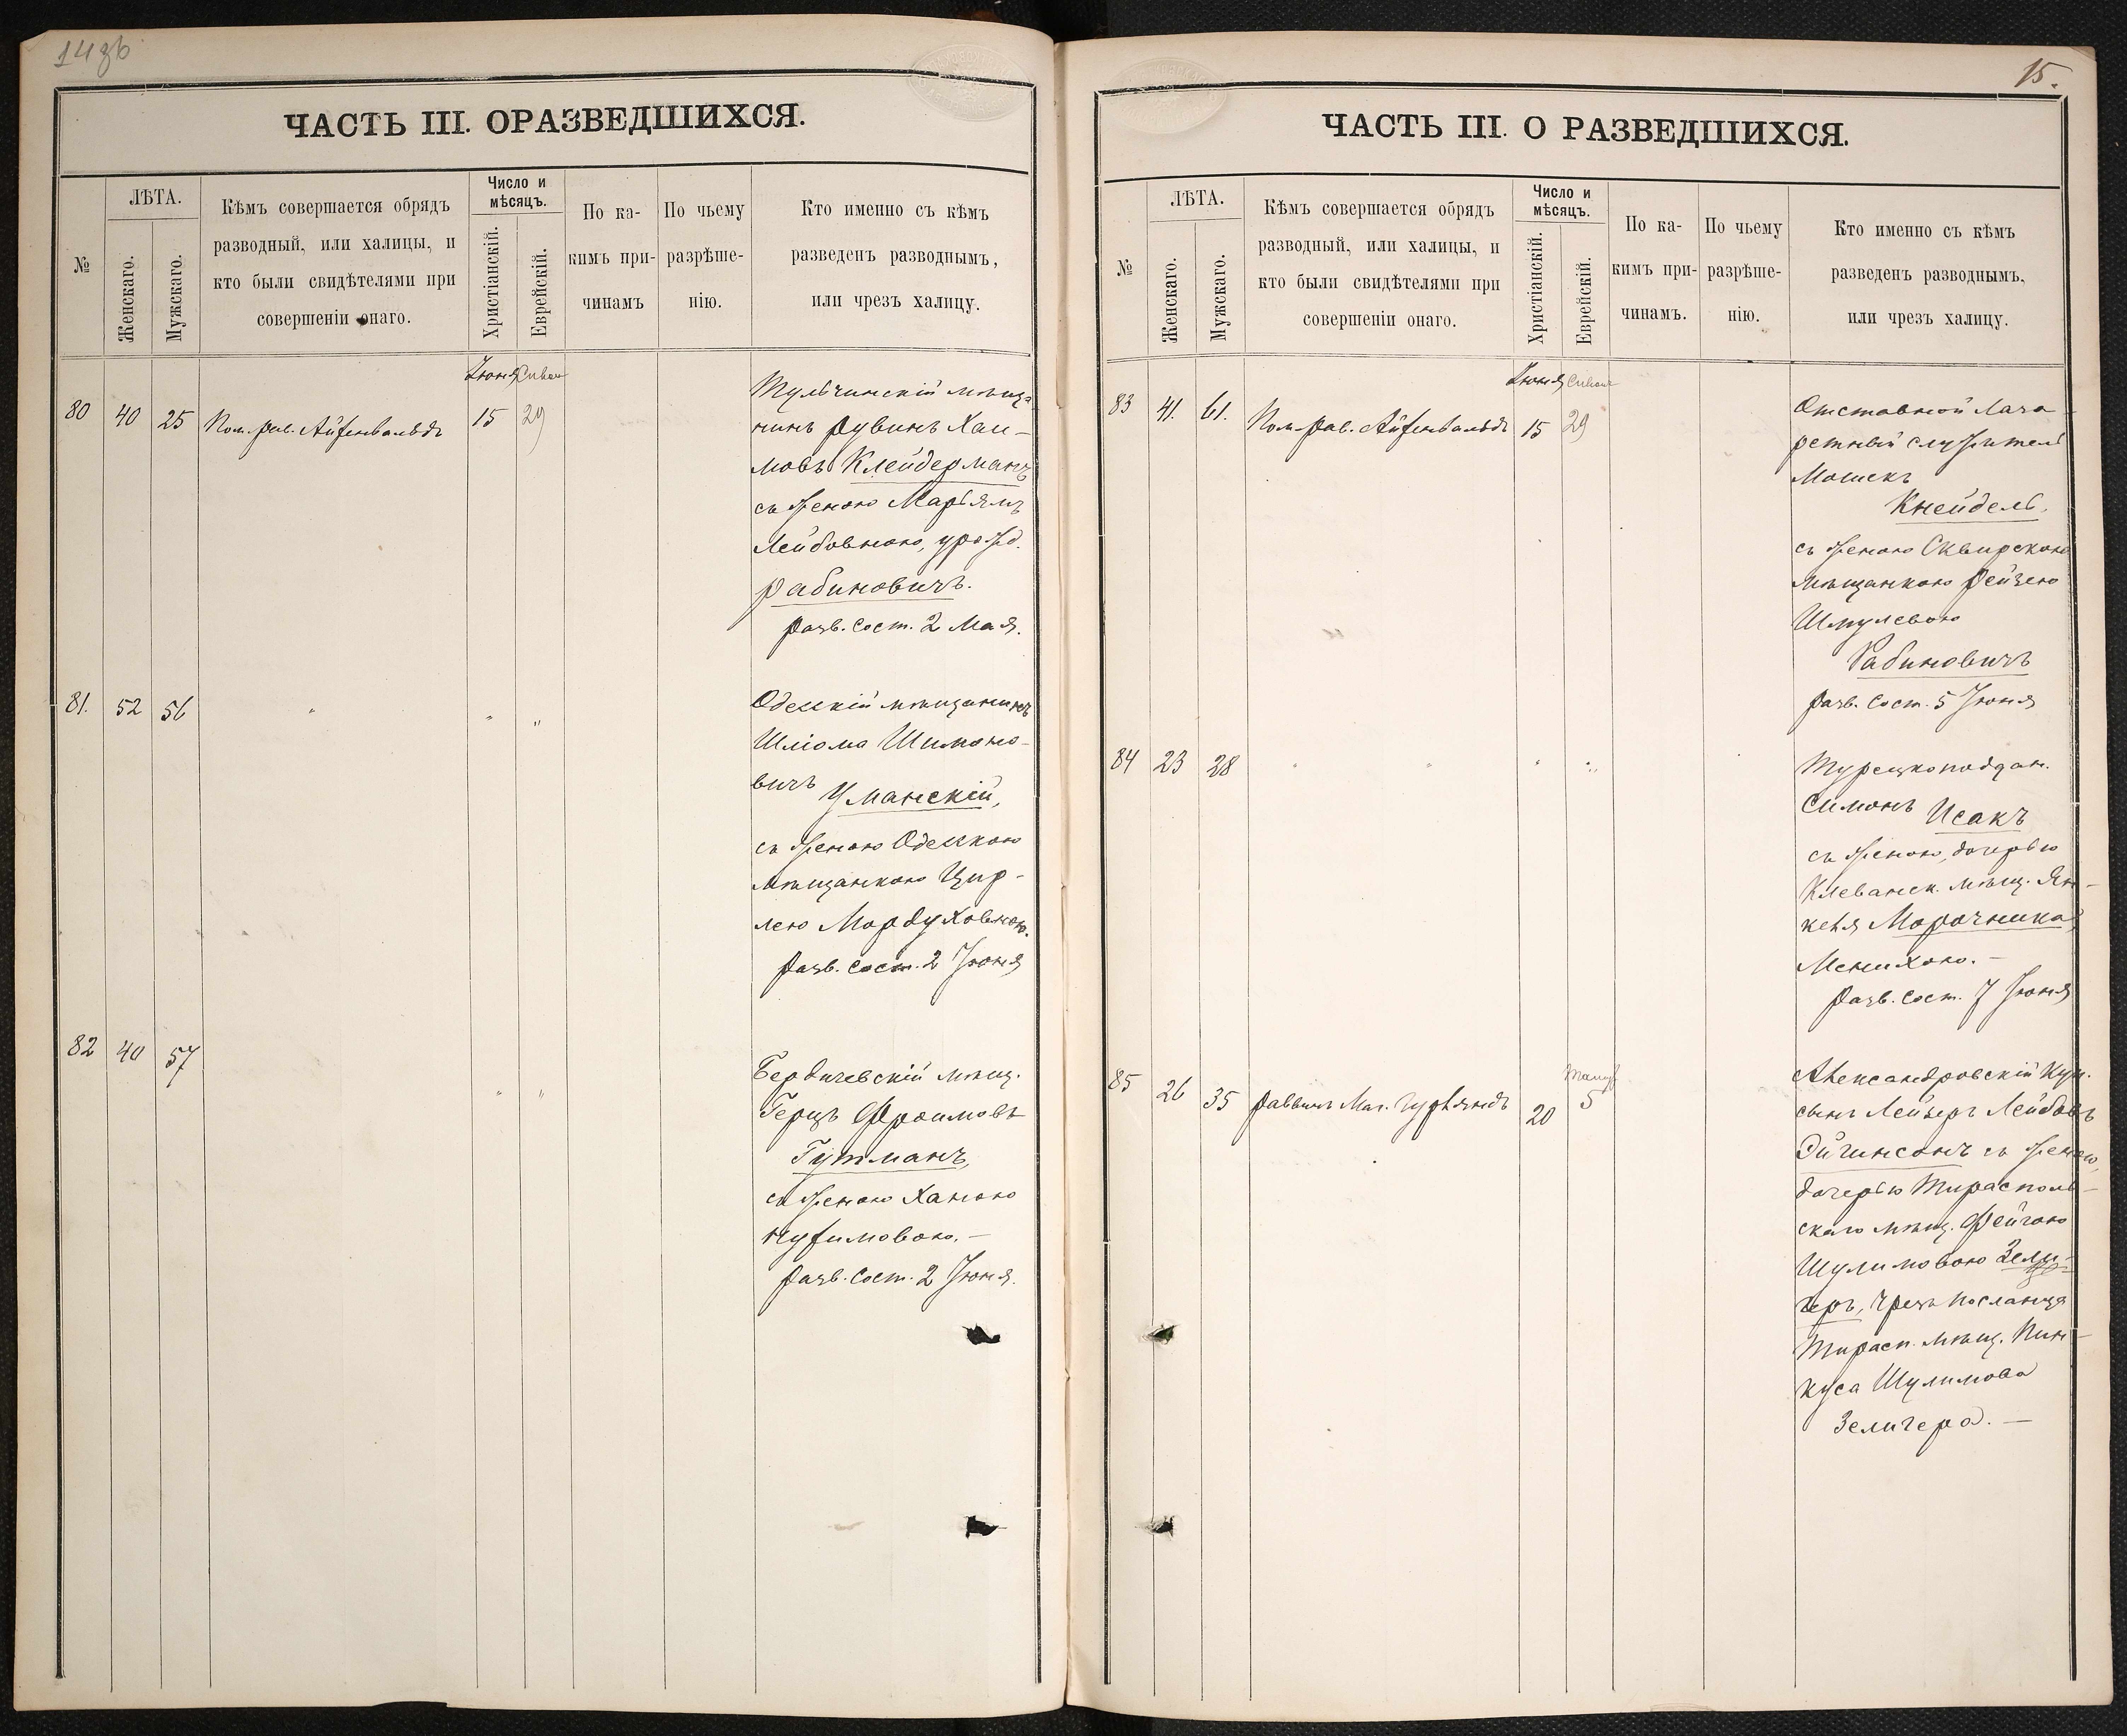 14зб
ЧАСТЬ III. ОРАЗВЕДШИХСЯ.
№
ЛѢТА.
Женскаго.
Мужскаго.
Кѣмъ совершается обрядъ
разводный, или халицы, и
кто были свидѣтелями при
совершеніи онаго.
Число и
мѣсяцъ.
Христіанскій.
Еврейскій.
По ка-
кимъ при-
чинамъ
По чьему
разрѣше-
нію.
Кто именно съ кѣмъ
разведенъ разводнымъ,
или чрезъ халицу.
Іюня Сиван
80 40 25 Пом. рав. Айзенвальдъ 15 29
Тульчинскій мѣща
нинъ Рувинъ Хаи-
мовъ Клейдерманъ
съ женою Марьямъ
Лейбовною, урожд.
Рабиновичъ.
Разв. сост. 2 Мая.
81. 52 56 " " "
Одесскій мѣщанинъ
Шліома Шимоно-
вичъ Уманскій,
съ женою Одесскою
мѣщанкою Цир-
лею Мордуховною.
Разв. сост. 2 Іюня
82 40 57 " "
Бердичевскій мѣщ.
Герцъ Фроимовъ
Гутманъ,
съ женою Ханою
Нузимовою. —
Разв. сост. 2 Іюня.
15.
ЧАСТЬ III. О РАЗВЕДШИХСЯ.
№
ЛѢТА.
Женскаго.
Мужскаго.
Кѣмъ совершается обрядъ
разводный, или халицы, и
кто были свидѣтелями при
совершеніи онаго.
Число и
мѣсяцъ.
Христіанскій.
Еврейскій.
По ка-
кимъ при-
чинамъ.
По чьему
разрѣше-
нію.
Кто именно съ кѣмъ
разведенъ разводнымъ,
или чрезъ халицу.
Іюня Сиван
83 41. 61. Пом. рав. Айзенвальдъ 15 29
Отставной лаза-
ретный служитель
Мошекъ
Кнейдель,
съ женою Сквирскою
мѣщанкою Рейзею
Шмулевою
Рабиновичъ
Разв. сост. 5 Іюня
84 23 28 " " " "
Турецкоподдан.
Симонъ Исакъ
съ женою, дочерью
Клеванск. мѣщ. Ян-
келя Марочника,
Менихою. —
Разв. сост. 7 Іюня
Тамуз
85 26 35 Раввинъ Маг. Гурляндъ 20 5
Александровскій Куп.
сынъ Лейзеръ Лейбовъ
Эйгинсонъ съ женою,
дочерью Тирасполь-
скаго мѣщ. Фейгою
Шулимовою Зели-
геръ, чрезъ посланца
Тирасп. мѣщ. Пин-
куса Шулимова
Зелигера. —